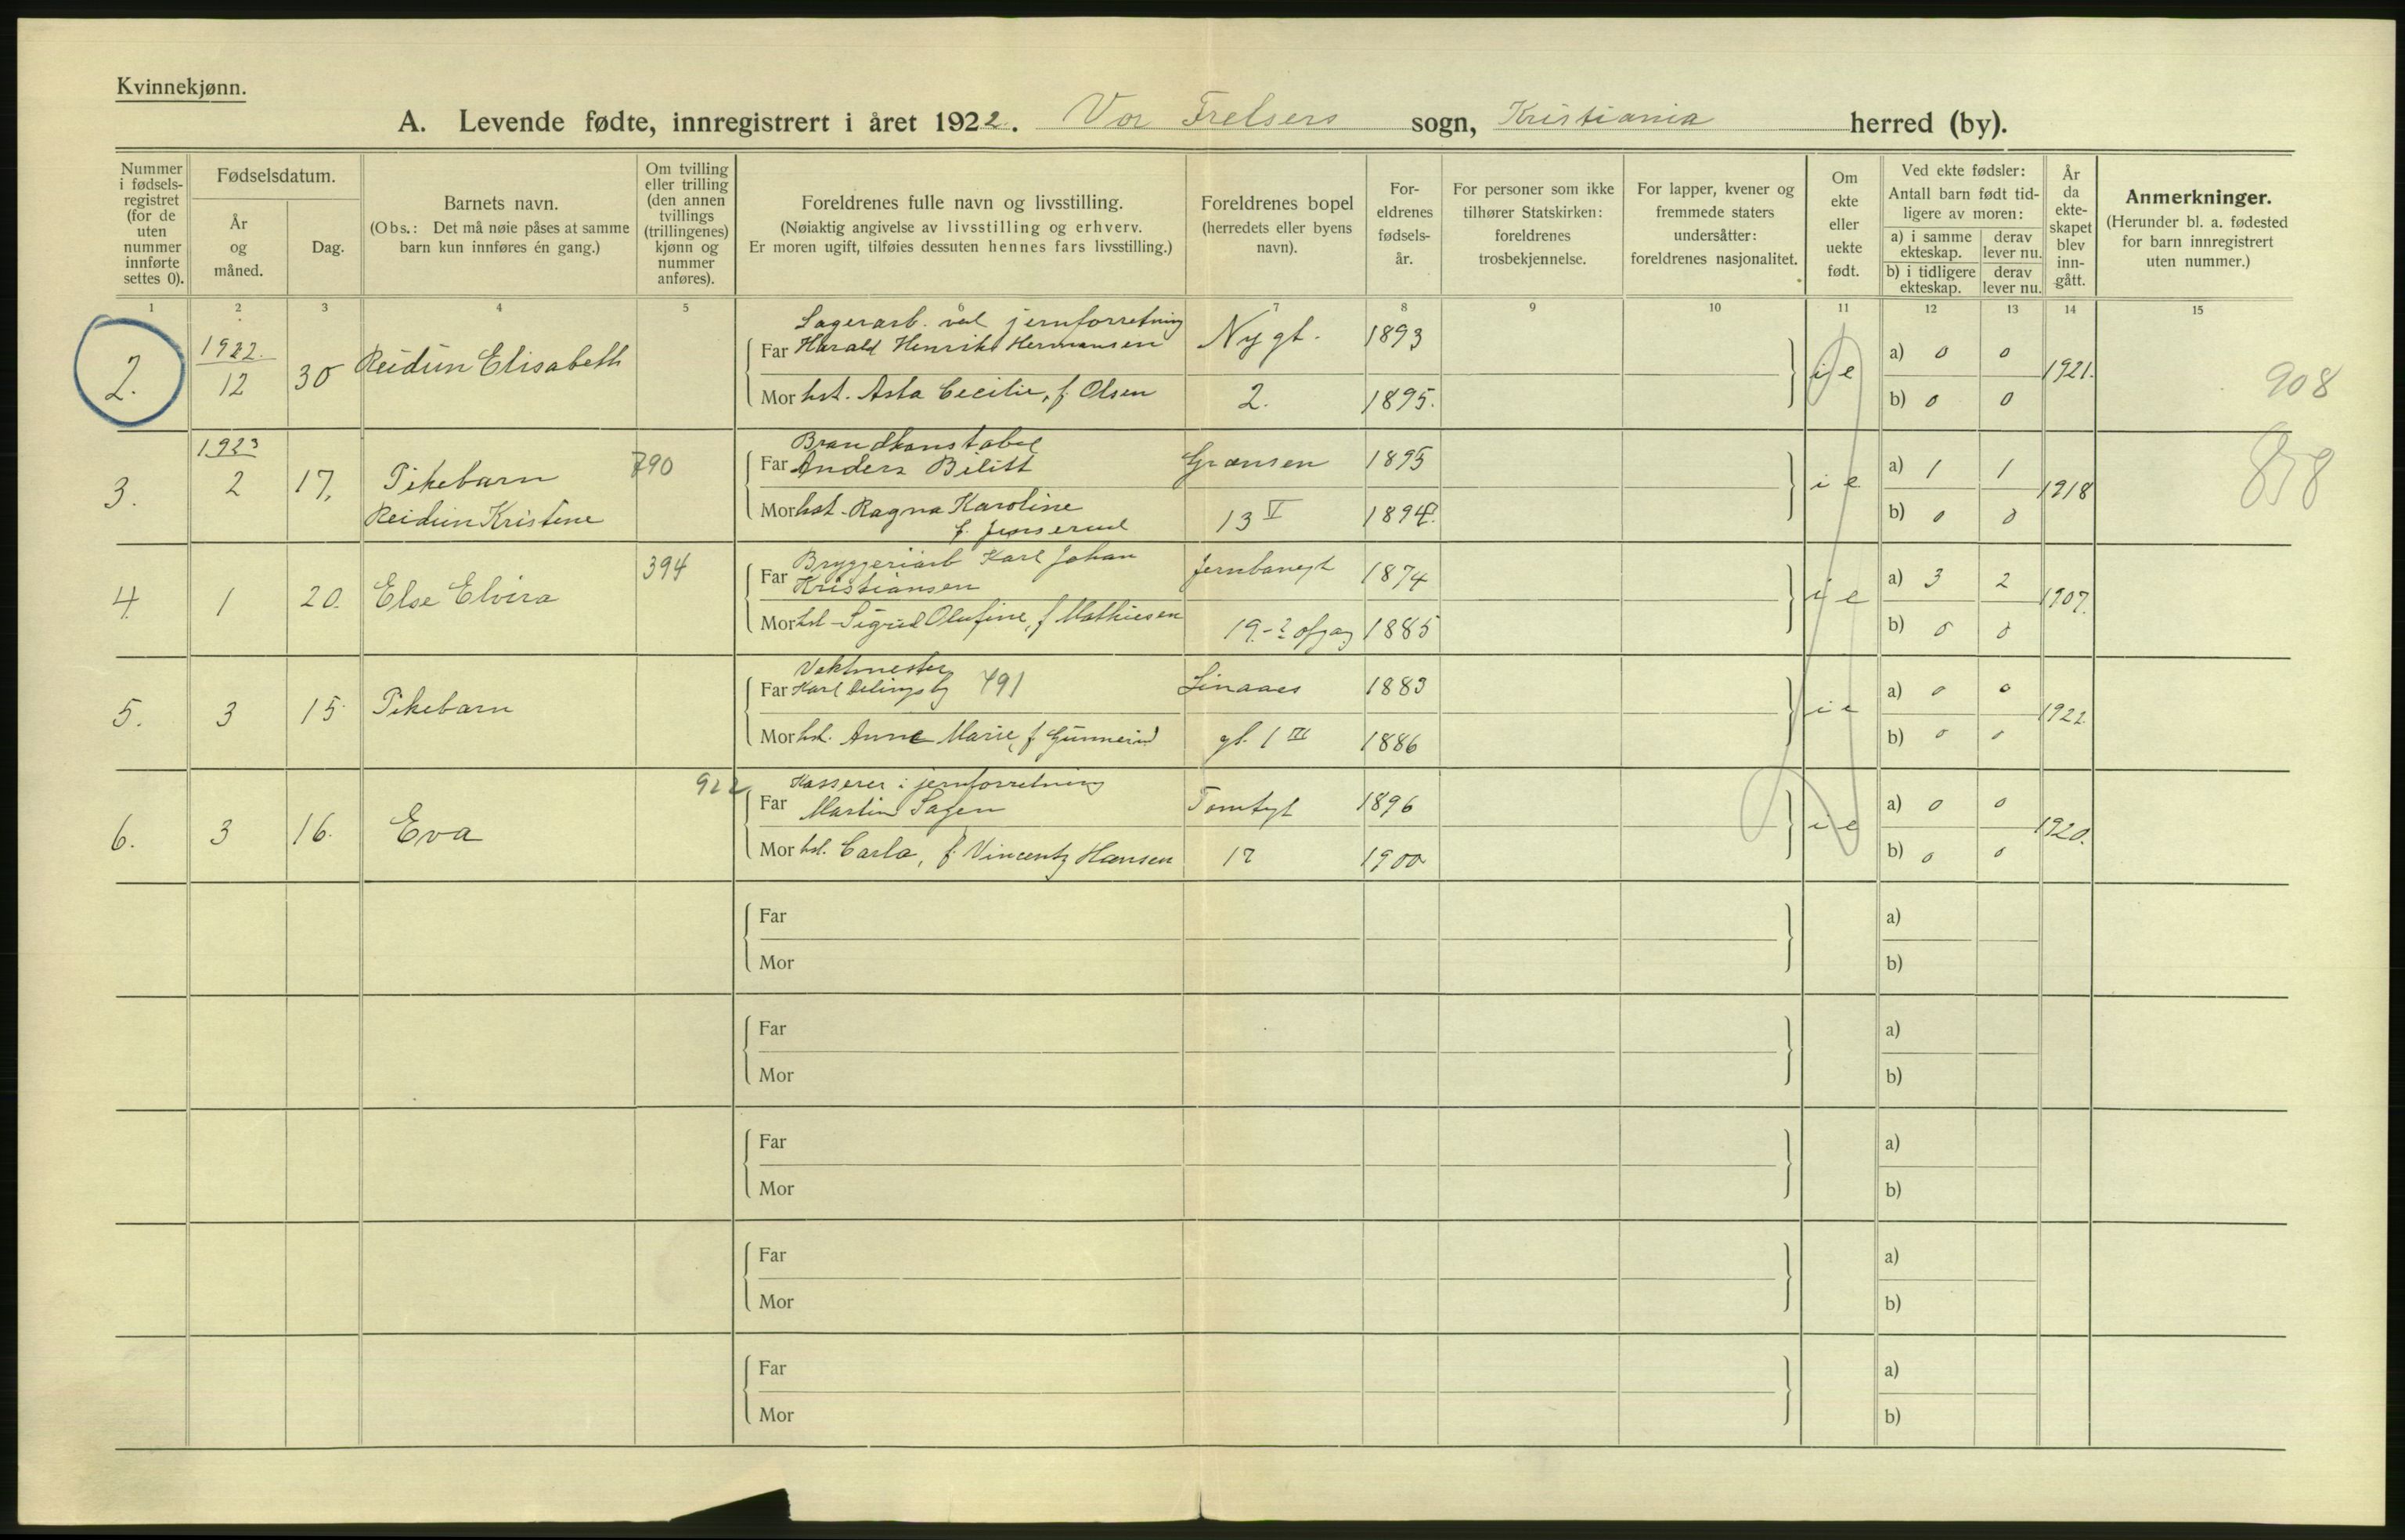 Kvinnekjønn.
A. Levende fødte, innregistrert i året 1922. Vor Frelsers sogn, Kristiania herred (by).
Nummer i fødsels-registret (for de uten nummer innførte settes 0).
Fødselsdatum.
År og måned.
Dag.
Barnets navn.
(Obs.: Det må nøie påses at samme barn kun innføres én gang.)
Om tvilling eller trilling (den annen tvillings (trillingenes) kjønn og nummer anføres).
Foreldrenes fulle navn og livsstilling.
(Nøiaktig angivelse av livsstilling og erhverv.
Er moren ugift, tilføies dessuten hennes fars livsstilling.)
Foreldrenes bopel
(herredets eller byens navn).
For-eldrenes fødsels-år.
For personer som ikke tilhører Statskirken: foreldrenes trosbekjennelse.
For lapper, kvener og fremmede staters undersåtter: foreldrenes nasjonalitet.
Om ekte eller uekte født.
Ved ekte fødsler:
Antall barn født tid-ligere av moren:
a) i samme ekteskap. derav lever nu.
b) i tidligere ekteskap. derav lever nu.
År da ekte-skapet blev inn-gått.
Anmerkninger.
(Herunder bl. a. fødested for barn innregistrert uten nummer.)
1 2 3 4 5 6 7 8 9 10 11 12 13 14 15
2. 1922. 12 30 Reidun Elisabeth
Lagerarb. ved jernforretning
Far Harald Henrik Hermansen Nygt. 1893
Mor hst. Asta Cecilie, f. Olsen 2. 1895.
i e a) 0 0 b) 0 0 1921. 908
3. 1923 2 17. Pikebarn
Reidun Kristine
790
Brandkonstabel
Far Anders Bilitt Grænsen 1895
Mor hst. Ragna Karoline
f. Jenserud 13 V 1894.
i e a) 1 1 b) 0 0 1918 858
4. 1 20. Else Elvira 394
Far Bryggeriarb Karl Johan
Kristiansen Jernbanegt 1874
Mor hst. Sigrid Olufine, f Mathiesen 19.-2 opgang 1885
i e a) 3 2 b) 0 0 1907.
5. 3 15. Pikebarn
Vaktmester
Far Karl 791 1883
Mor hst. Anne Marie, f. gt. 1 III 1886
i e a) 0 0 b) 0 0 1922.
6. 3 16. Eva 922
Kasserer i jernforretning
Far Martin Sagen Tomtegt 1896
Mor hst. Carla, f. Vincentz Hansen 17 1900
i e a) 0 0 b) 0 0 1920.
Far a)
Mor b)
Far a)
Mor b)
Far a)
Mor b)
Far a)
Mor b)
Far a)
Mor b)